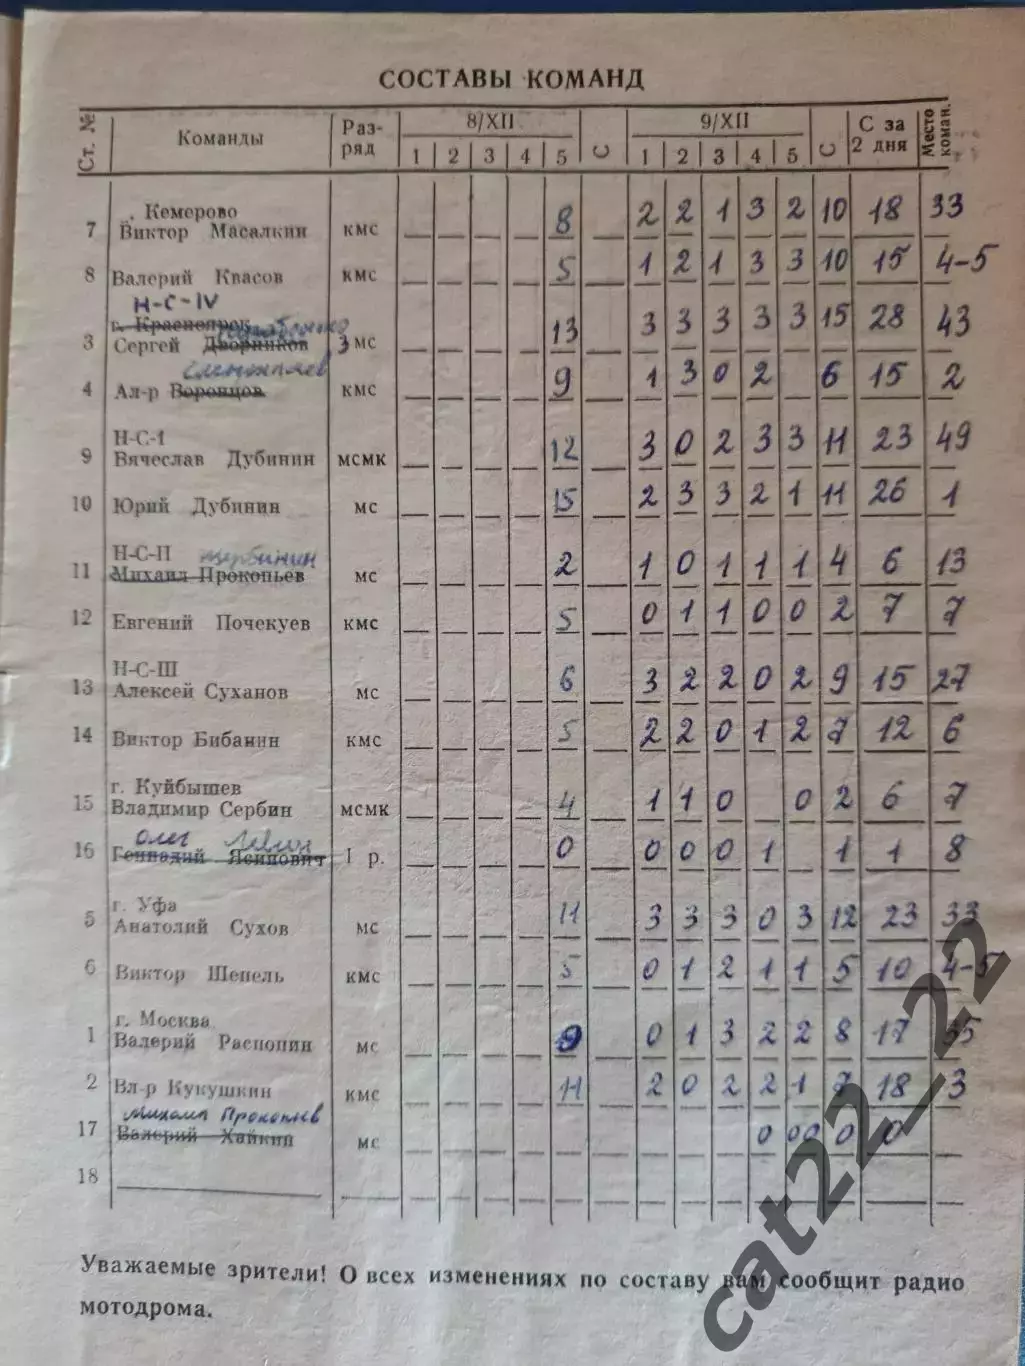 СОСТАВЫ КОМАНД
Ст. № Команды Раз-ряд 8/XII С 9/XII С С за 2 дня Место коман.
1 2 3 4 5 1 2 3 4 5
г. Кемерово
7 Виктор Масалкин кмс 8 2 2 1 3 2 10 18 33
8 Валерий Квасов кмс 5 1 2 1 3 3 10 15 4-5
Н-С-IV
г. Красноярск
3 Сергей Дворников 3 мс 13 3 3 3 3 3 15 28 43
4 Ал-р Воронцов кмс 9 1 3 0 2 6 15 2
Н-С-I
9 Вячеслав Дубинин мсмк 12 3 0 2 3 3 11 23 49
10 Юрий Дубинин мс 15 2 3 3 2 1 11 26 1
Н-С-II Щербинин
11 Михаил Прокопьев мс 2 1 0 1 1 1 4 6 13
12 Евгений Почекуев кмс 5 0 1 1 0 0 2 7 7
Н-С-III
13 Алексей Суханов мс 6 3 2 2 0 2 9 15 27
14 Виктор Бибанин кмс 5 2 2 0 1 2 7 12 6
г. Куйбышев
15 Владимир Сербин мсмк 4 1 1 0 0 2 6 7
Олег
16 Геннадий Ясинович 1 р. 0 0 0 0 1 1 1 8
г. Уфа
5 Анатолий Сухов мс 11 3 3 3 0 3 12 23 33
6 Виктор Шепель кмс 5 0 1 2 1 1 5 10 4-5
г. Москва
1 Валерий Распопин мс 9 0 1 3 2 2 8 17 35
2 Вл-р Кукушкин кмс 11 2 0 2 2 1 7 18 3
Михаил Прокопьев
17 Валерий Хайкин мс 0 00 0 0
18
Уважаемые зрители! О всех изменениях по составу вам сообщит радио
мотодрома.
cat22_22